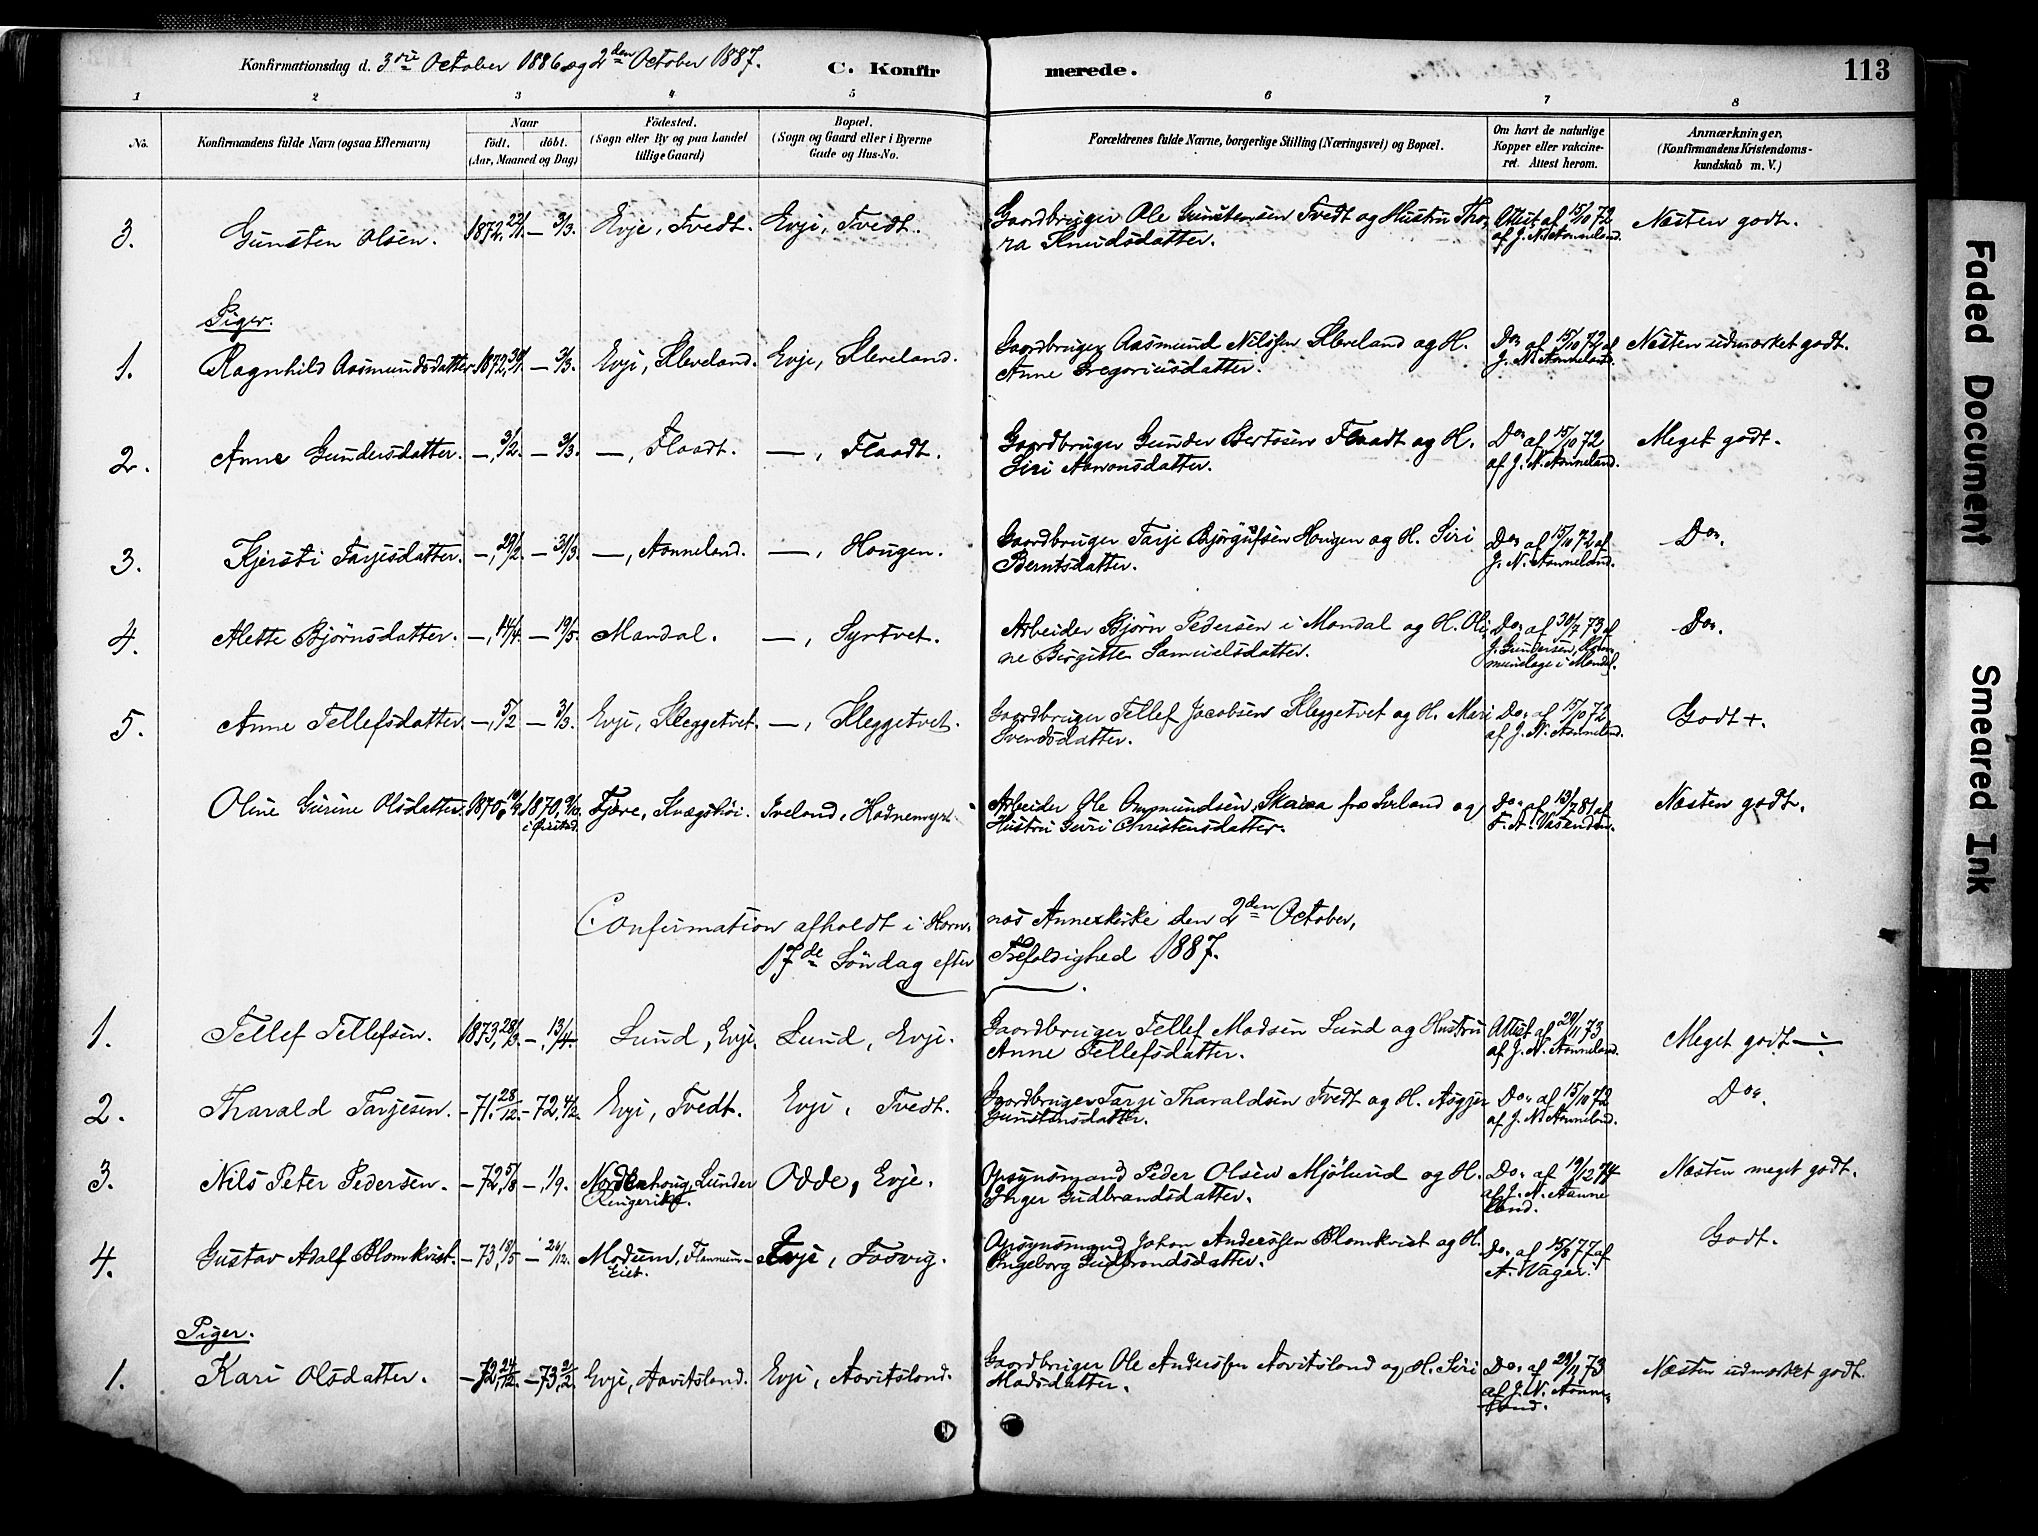 Konfirmationsdag d. 3die October 1886 og 2den October 1887.
C. Konfirmerede.
113
1 2 3 4 5 6 7 8
No.
Konfirmandens fulde Navn (ogsaa Efternavn)
Naar
födt. döbt.
(Aar, Maaned og Dag)
Födested.
(Sogn eller By og paa Landet
tillige Gaard)
Bopæl.
(Sogn og Gaard eller i Byerne
Gade og Hus-No.
Forældrenes fulde Navne, borgerlige Stilling (Næringsvei) og Bopæl.
Om havt de naturlige
Kopper eller vakcine-
ret. Attest herom.
Anmærkninger.
(Konfirmandens Kristendoms-
kundskab m. V.)
3. Gunsten Olsen. 1872, 22/1. — 3/3. Evje, Tvedt. Evje, Tvedt. Gaardbruger Ole Gunstensen Tvedt og Hustru Tho- Attest af 15/10 72 Næsten godt.
ra Knudsdatter. af J. N. Aanneland.
Piger.
1. Ragnhild Aasmundsdatter 1872, 30/1. — 3/3. Evje, Kleveland. Evje, Kleveland. Gaardbruger Aasmund Nilsen Kleveland og H. Do. af 15/10 72 af Næsten udmærket godt.
Anne Gregoriusdatter. J. N. Aanneland.
2. Anne Gundersdatter. —, 3/2. — 3/3. —, Flaadt. —, Flaadt. Gaardbruger Gunder Bertsen Flaadt og H. Do. af 15/10 72 Meget godt.
Siri Aaronsdatter. af J. N. Aanneland.
3. Kjersti Tarjesdatter. —, 29/2. — 31/3. —, Aanneland. —, Hougen. Gaardbruger Tarje Bjørgufsen Hougen og H. Siri Do. af 15/10 72 af Do.
Berntsdatter. J. N. Aanneland.
4. Alette Bjørnsdatter. —, 14/4. — 19/5. Mandal. —, Syrtvet. Arbeider Bjørn Pedersen i Mandal og H. Oli- Do. af 30/7 73 af Do.
ne Birgitte Samuelsdatter. J. Gundersen,
i Mandal.
5. Anne Tellefsdatter. —, 5/2 — 3/3. Evje, Kleggetvet. —, Kleggetvet. Gaardbruger Tellef Jacobsen Kleggetvet og H. Mari Do. af 15/10 72 Godt +.
Svendsdatter. af J. N. Aanneland.
Oline Gurine Olsdatter. 1870, 1870, 9/10. Fjære, Iveland, Arbeider Ole Omundsen Skaiaa fra Iveland og Do. af 13/7 81 af Næsten godt.
i Øiestad. Hustru Guri Christensdatter.
Confirmation afholdt i Horn- nas Annexkirke den 2den October,
17de Søndag efter Trefoldighed 1887.
1. Tellef Tellefsen. 1873, 28/3. —, 13/4. Lund, Evje. Lund, Evje. Gaardbruger Tellef Madsen Lund og Hustru Attest af 29/11 73 Meget godt ÷
Anne Tellefsdatter. af J. N. Aanneland.
2. Tharald Tarjesen. — 71, 28/12. — 72, 4/2. Evje, Tvedt. Evje, Tvedt. Gaardbruger Tarje Tharaldsen Tvedt og H. Asgjer Do. af 15/10 72 Do.
Gunstensdatter. af J. N. Aanneland.
3. Nils Peter Pedersen. — 72, 5/8 —, 1/9. Norderhoug, Lunder Odde, Evje. Opsynsmand Peder Olsen Mjølund og H. Do. af 19/12 74 Næsten meget godt.
Ringerike. Inger Gudbrandsdatter. af J. N. Aanne
land.
4. Gustav Adolf Blomkvist. — 73, 18/5 — 26/12. Modum, Evje, Fosvig. Opsynsmand Johan Andersen Blomkvist og H. Do. af 15/8 77 af Godt.
Eiet. Ingeborg Gudbrandsdatter. A. Vager.
Piger.
1. Kari Olsdatter. — 72, 24/12. — 73, 2/2. Evje, Aavitsland. Evje, Aavitsland. Gaardbruger Ole Andersen Aavitsland og H. Siri Do. af 29/11 73 Næsten udmærket godt.
Madsdatter. af J. N. Aanne-
land.
Faded Document
Smeared Ink